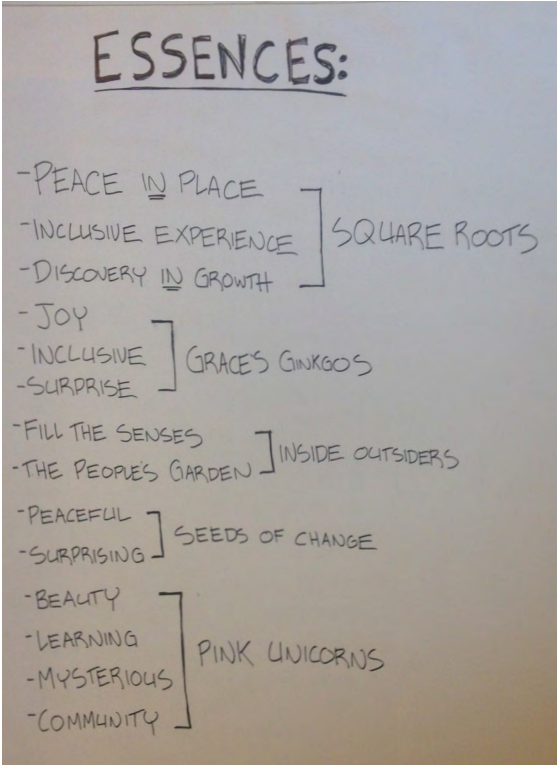 ESSENCES:
-PEACE IN PLACE
-INCLUSIVE EXPERIENCE
-DISCOVERY IN GROWTH
SQUARE ROOTS
-JOY
-INCLUSIVE
-SURPRISE
GRACE'S GINKGOS
-FILL THE SENSES
-THE PEOPLE'S GARDEN
INSIDE OUTSIDERS
-PEACEFUL
-SURPRISING
SEEDS OF CHANGE
-BEAUTY
-LEARNING
-MYSTERIOUS
-COMMUNITY
PINK UNICORNS